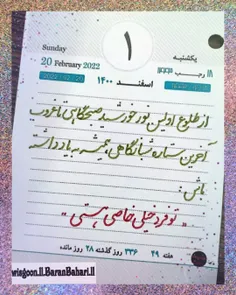 Sunday
20 February 2022
۱
یکشنبه
۱۸ رجب ۱۴۴۳
اسفند ۱۴۰۰
از طلوع اولین نور خورشید صبحگاهی تا غروب
آخرین ستاره شبانگاهی همیشه به یاد داشته
باش :
"تو فرد خیلی خاصی هستی"
هفته ۴۹ ۳۳۶ روز گذشته ۲۸ روز مانده
wisgoon.ll.BaranBahari.ll